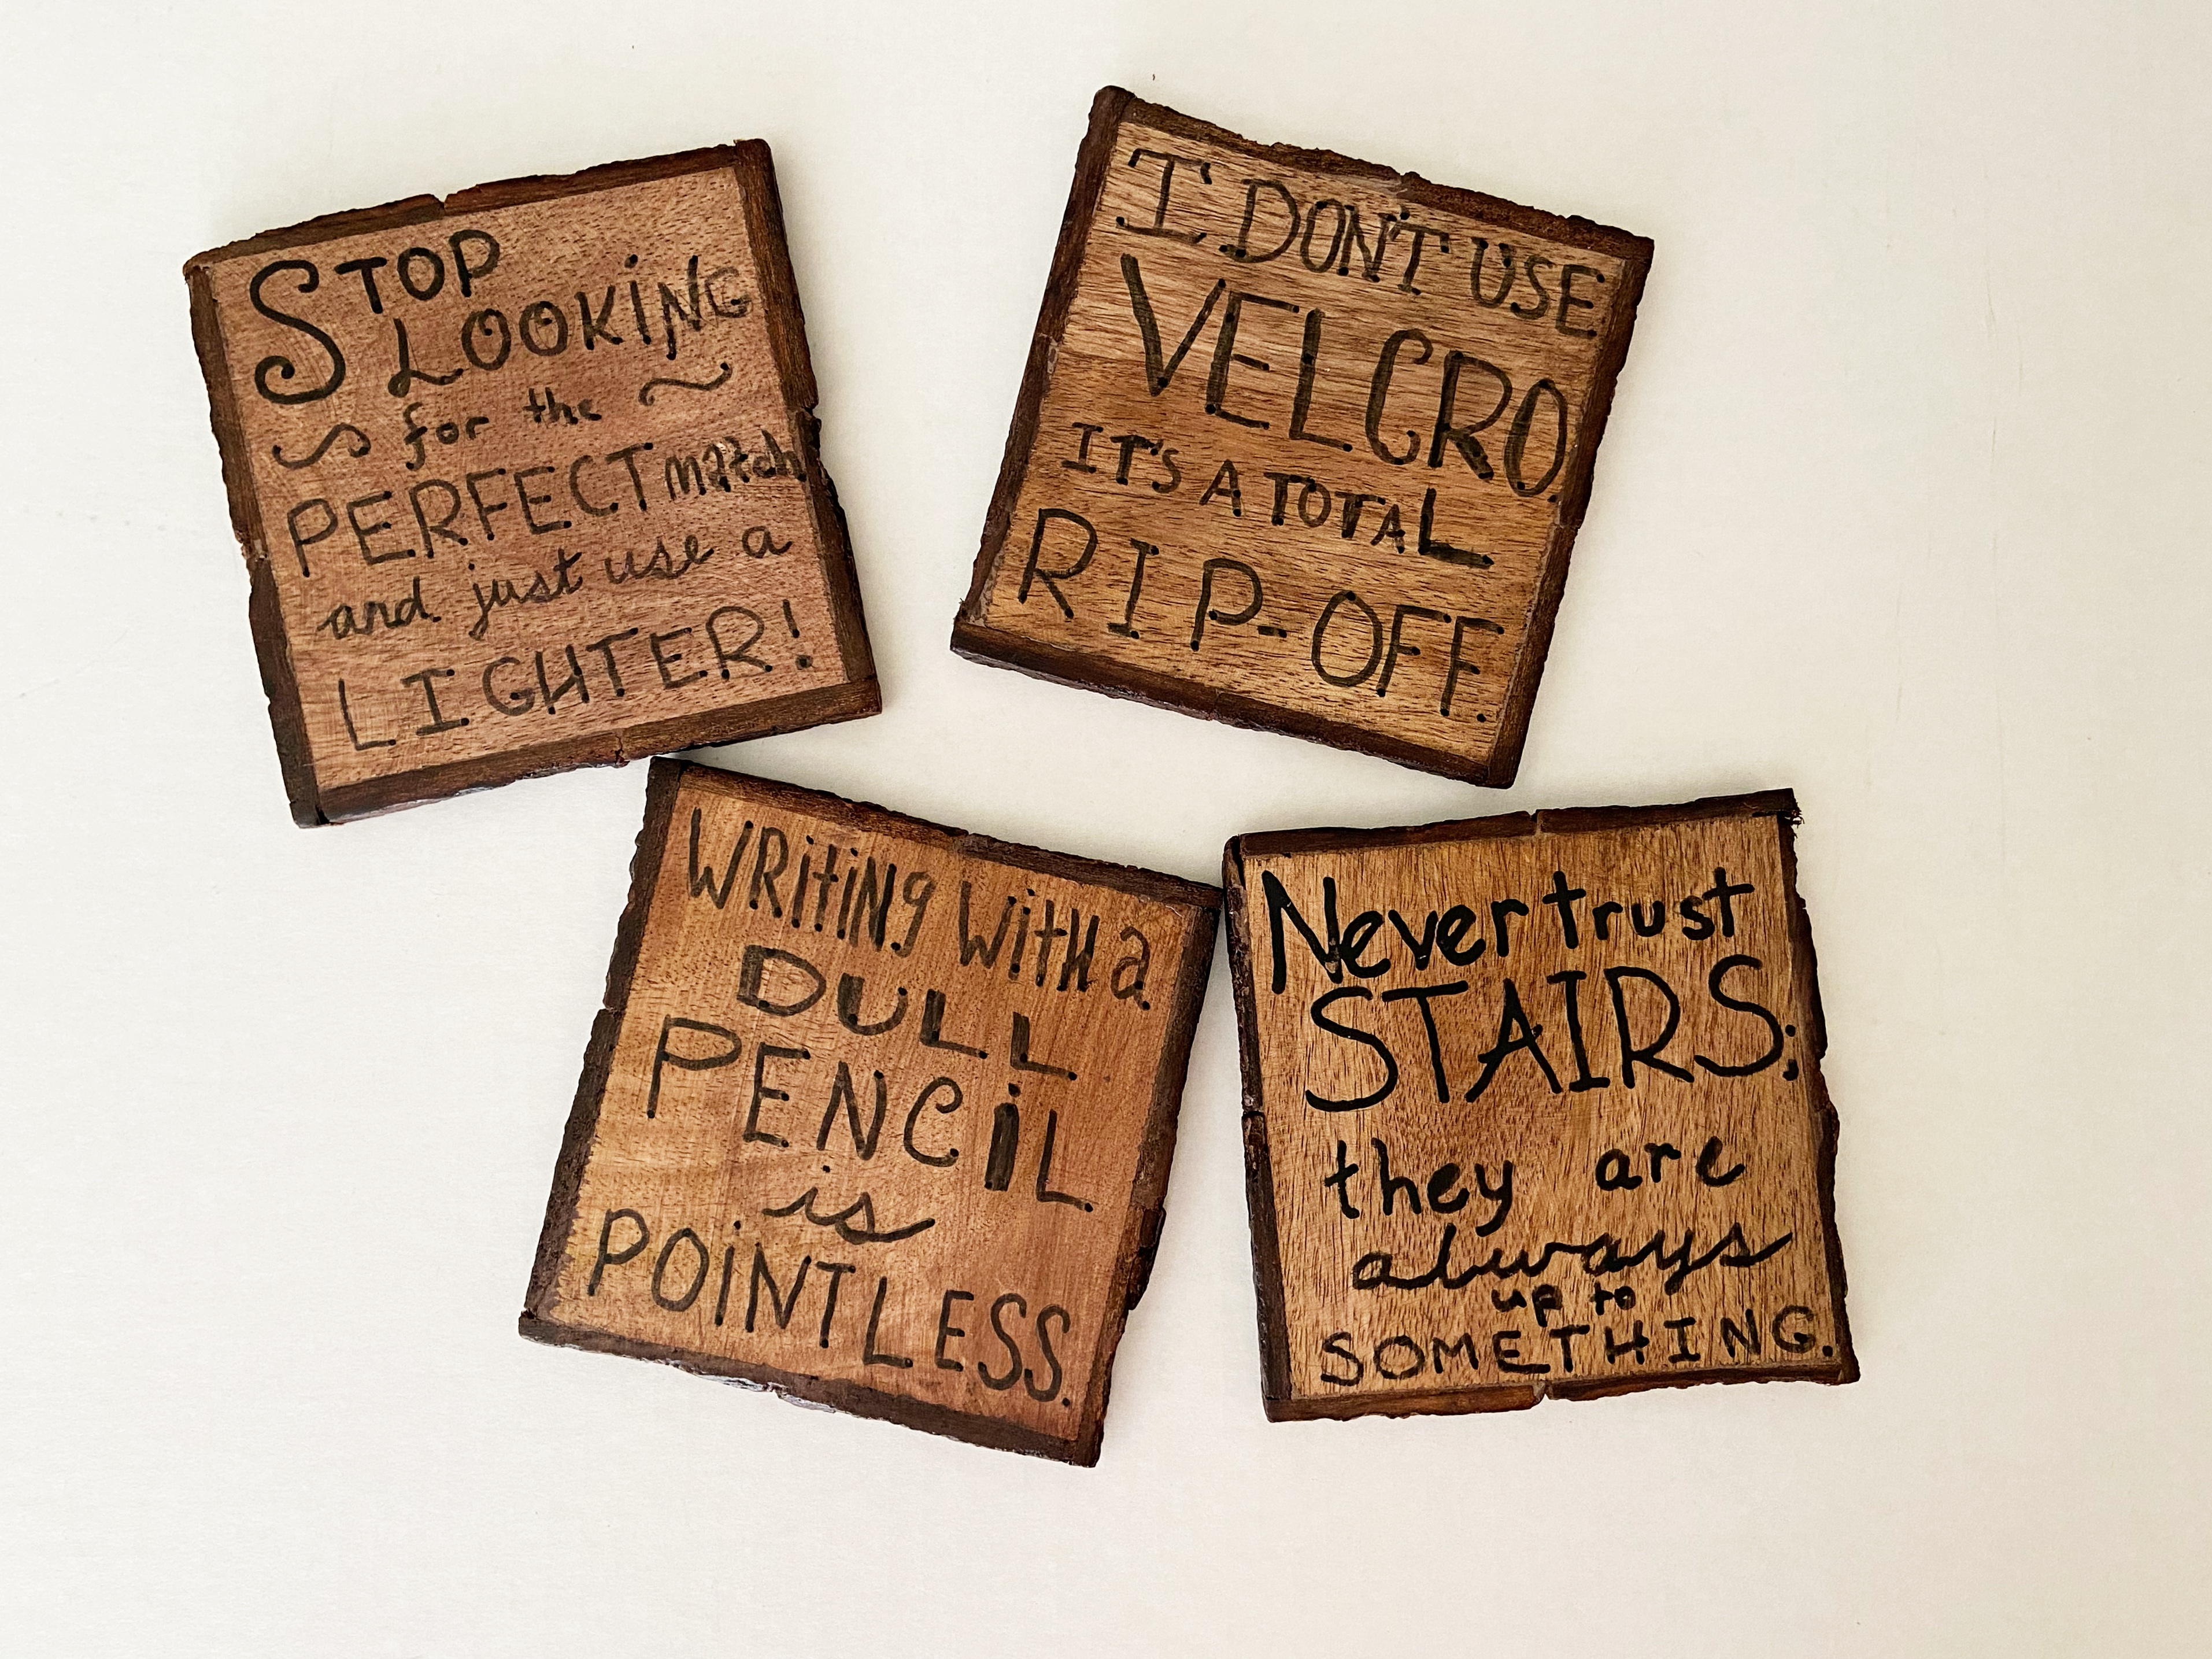 STOP
LOOKiNG
for the
PERFECT match
and just use a
LIGHTER!
I DON'T USE
VELCRO.
IT'S A TOTAL
RIP-OFF.
WRitiNg WitH a
DULL
PENCiL
is
POiNTLESS.
Never trust
STAIRS;
they are
always
up to
SOMETHING.